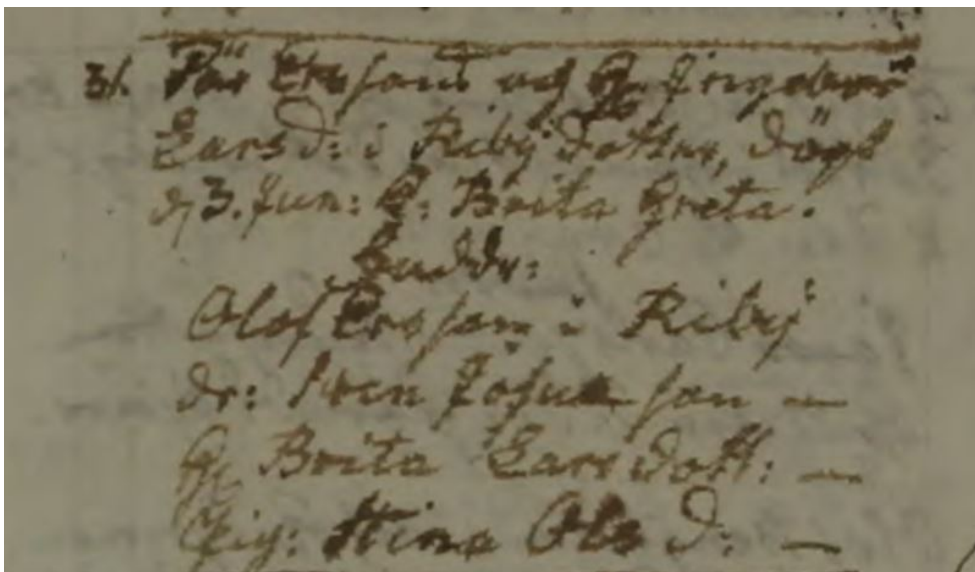 31. Pär Ersons och H. Ingebor
Lars D: i Riby dotter, döpt
d 3. Jun: Brita Greta.
Faddr:
Olof Ersson i Riby
dr: Sven son —
H. Brita Larsdott: —
Pig: Stina Ols D: —